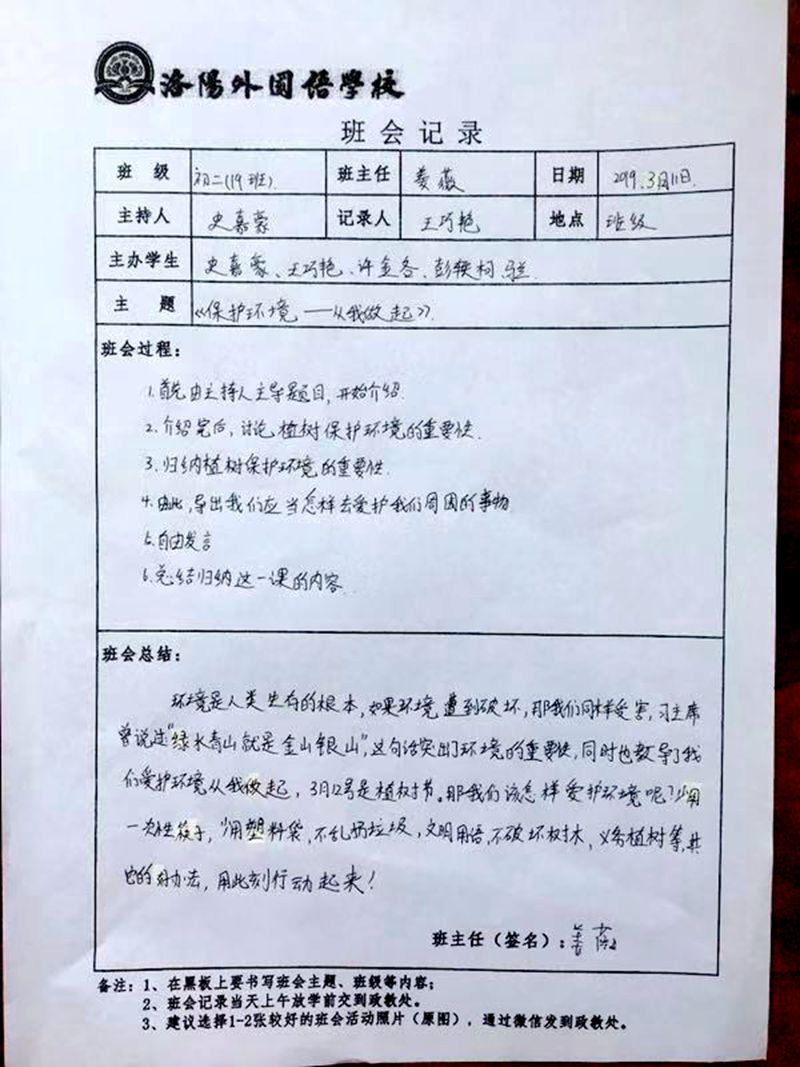 洛陽外国語學校
班会记录
班 级 初二(19班). 班主任 姜薇 日期 2019.3月11日.
主持人 史嘉蒙 记录人 王巧艳 地点 班级
主办学生 史嘉蒙、王巧艳、许金各、彭轶柯
主 题 《保护环境——从我做起》.
班会过程：
1.首先由主持人主导题目,开始介绍.
2.介绍完后,讨论植树保护环境的重要性.
3.归纳植树保护环境的重要性.
4.由此,导出我们应当怎样去爱护我们周围的事物
5.自由发言
6.总结归纳这一课的内容.
班会总结：
环境是人类生存的根本,如果环境遭到破坏,那我们同样受害,习主席
曾说过"绿水青山就是金山银山",这句话突出了环境的重要性,同时也教导了我
们爱护环境从我做起,3月12号是植树节。那我们该怎样爱护环境呢?少用
一次性筷子,少用塑料袋,不乱扔垃圾,文明用语,不破坏树木,义务植树等,其
它的好办法,用此刻行动起来!
班主任（签名）：姜薇
备注：1、在黑板上要书写班会主题、班级等内容；
2、班会记录当天上午放学前交到政教处。
3、建议选择1-2张较好的班会活动照片（原图），通过微信发到政教处。